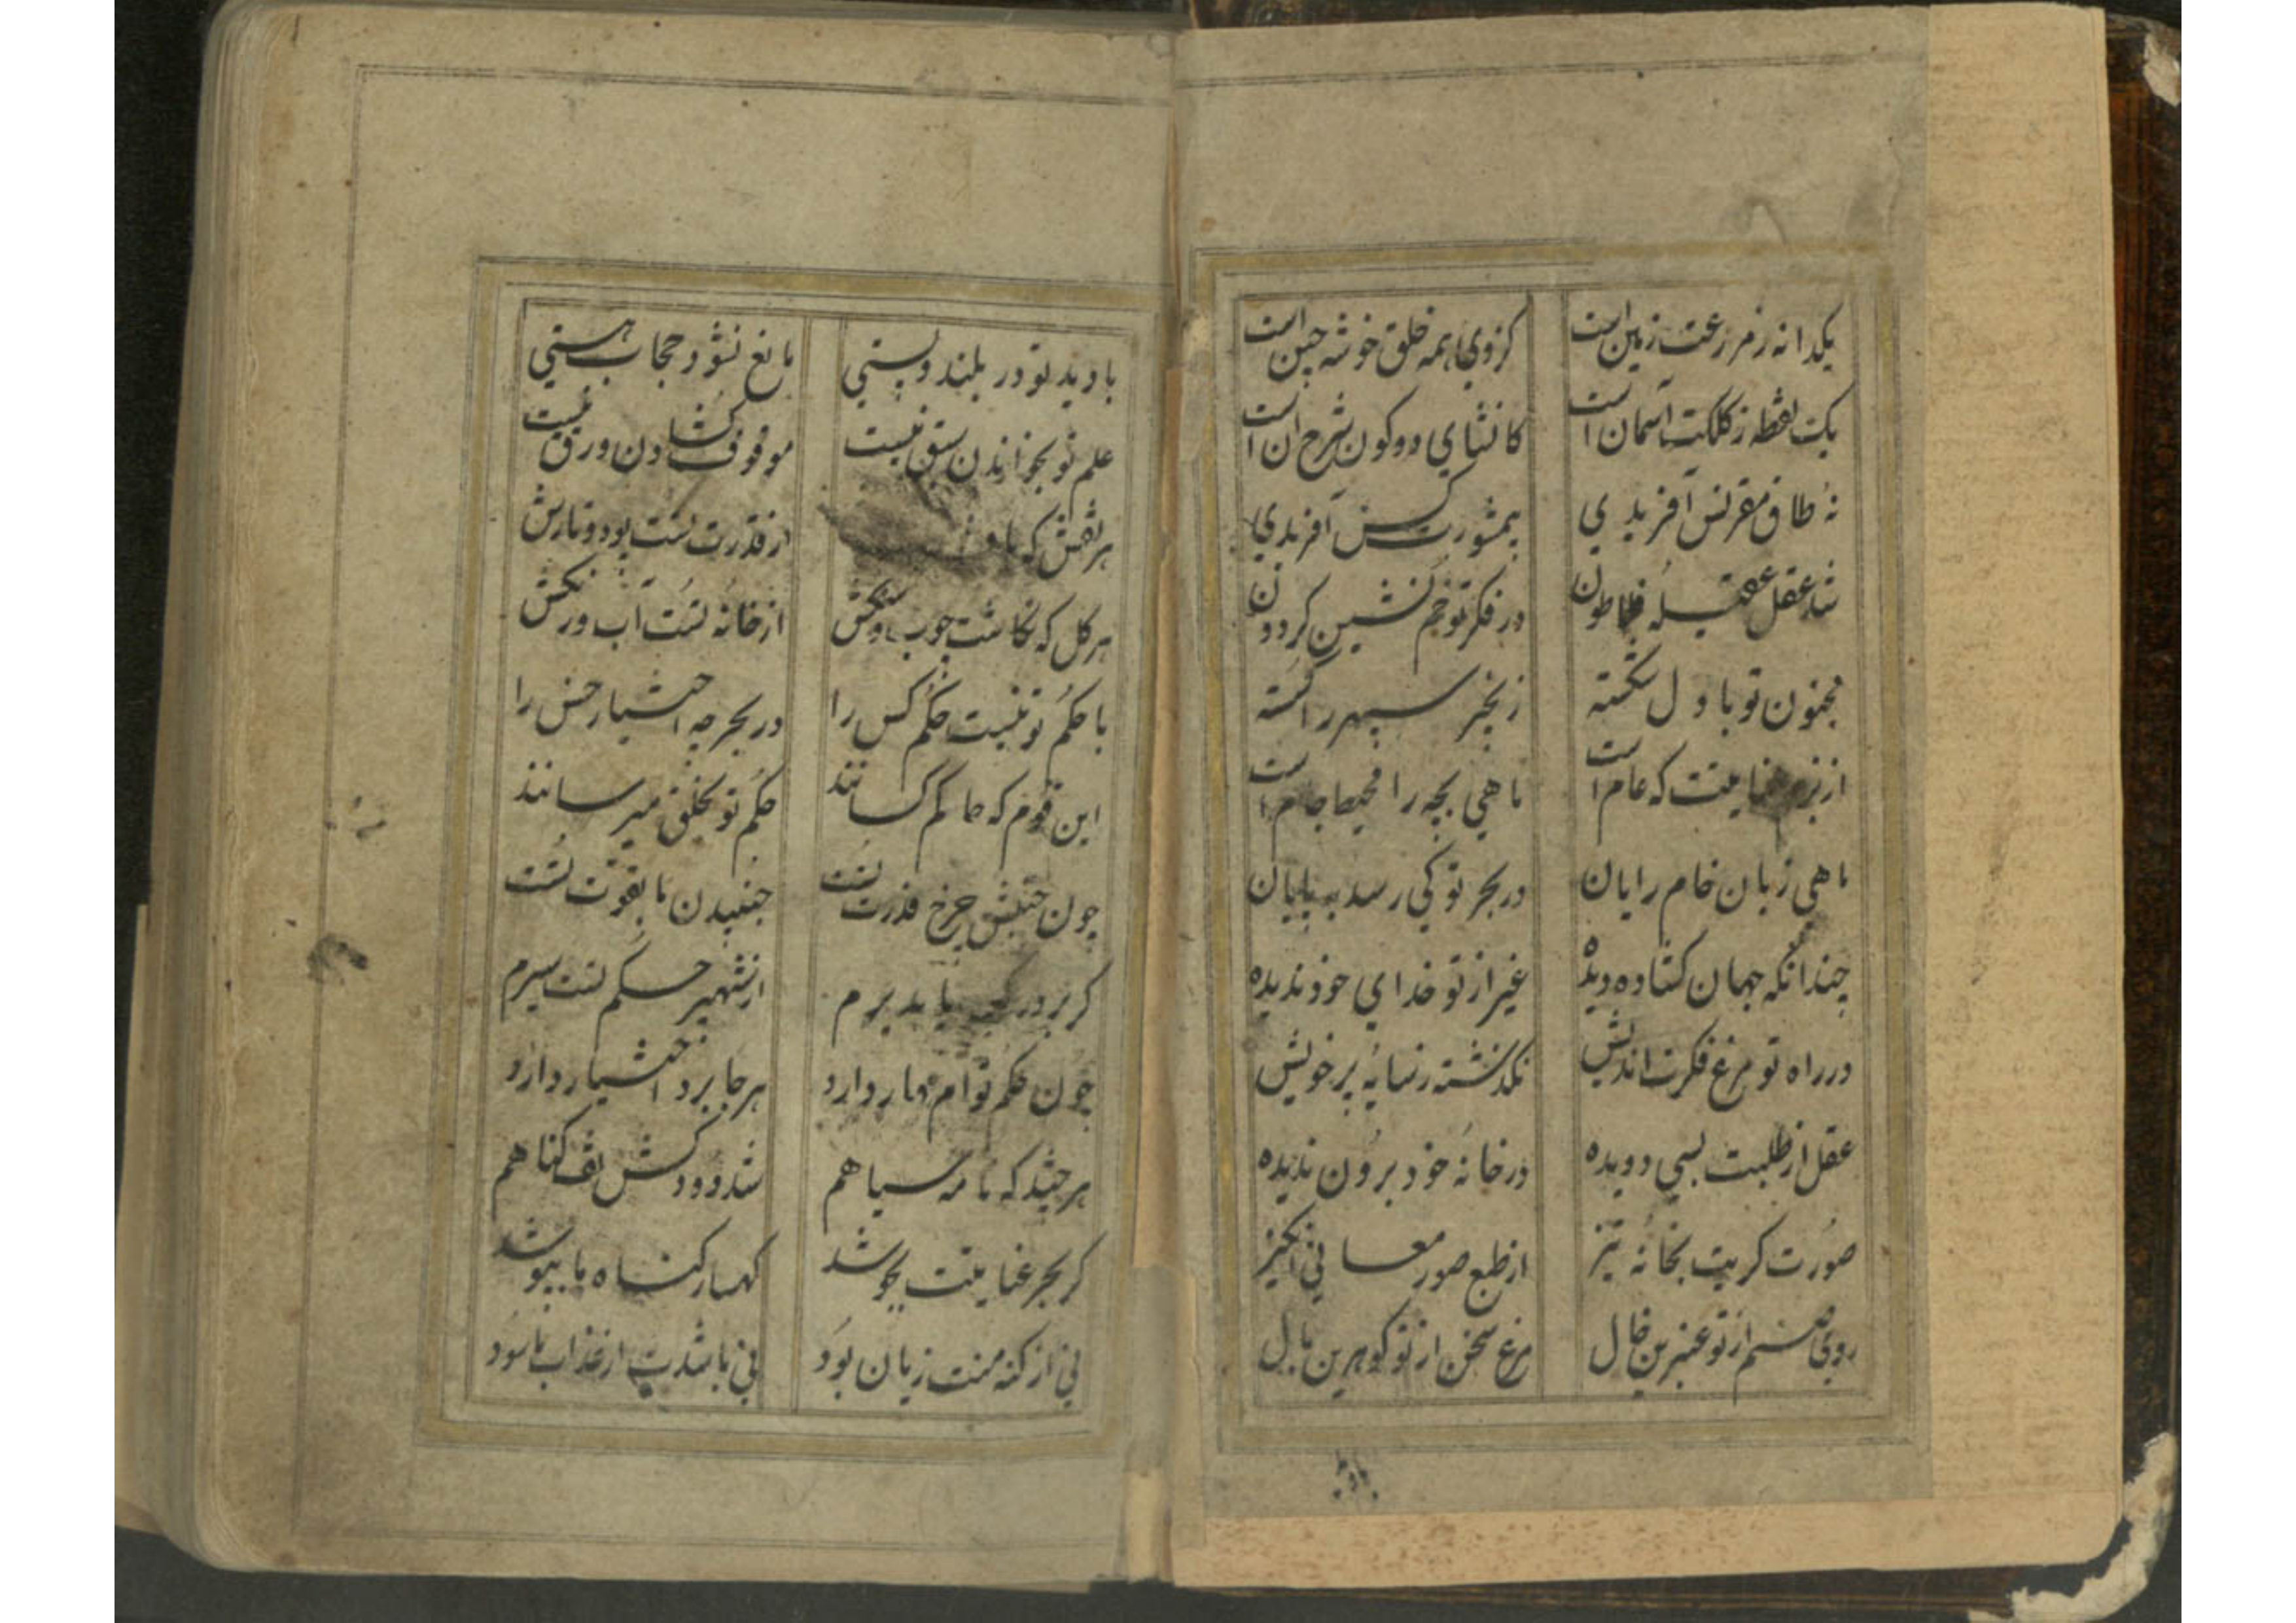 یکدانه ز مزرعت زمین است کزوی همه خلق خوشه چین است
یک نقطه ز کلکت آسمان است کانشای دو کون شرح آن است
نه طاق مقرنس آفریدی بیمشورت کس آفریدی
شد عقل عقیله فلاطون در فکر تو خم نشین گردون
مجنون تو با دل شکسته زنجیر سپهر را گسسته
از بزم عنایتت که عام است ماهی بچه را محیط جام است
ماهی زبان خام رایان در بحر تو کی رسد بپایان
چندانکه جهان گشاده دیده غیر از تو خدای خود ندیده
در راه تو مرغ فکرت اندیش نگذشته ز سایه پر خویش
عقل از طلبت بسی دویده در خانه خود برون ندیده
صورت گر بتخانه تیز از طبع صور معانی انگیز
روی صنم از تو عنبرین خال مرغ سخن از تو گوهرین بال
بادید
بادید تو در بلند و پستی مانع نشود حجاب هستی
علم تو بخواندن سبق نیست موقوف گشادن ورق نیست
هر نقش که از قدرت تست پود و تارش
هر گل که نگاشت چوب و سنگش از خانه تست آب و رنگش
با حکم تو نیست حکم کس را در بحر چه اختیار خس را
این قوم که حاکم کسانند حکم تو بخلق میرسانند
چون جنبش چرخ قدرت تست جنبیدن ما بقوت تست
گر بر در یا بد برم از شهپر حکم تست سیرم
چون حکم توام مهار دارد هر جا برد اختیار دارد
هر چند که نامه سیاهم شد دود کش تف گناهم
گر بحر عنایتت بجوشد کهسار گناه ما بپوشد
نی از گنه منت زیان بود نی باشدت از عذاب ما سود